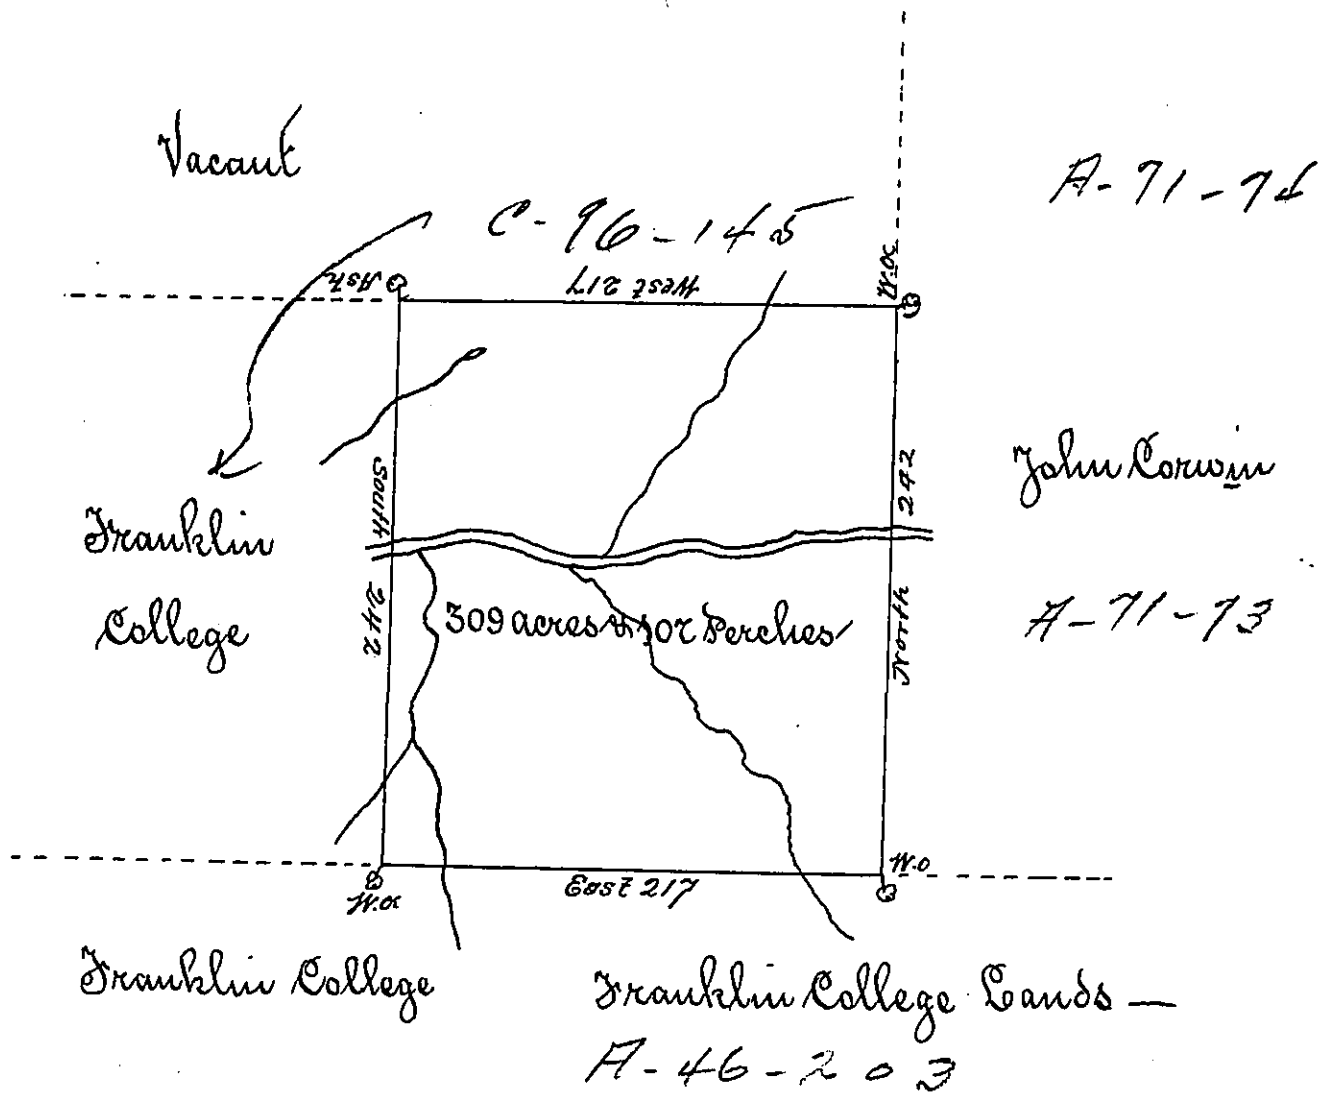 Vacant
A-71-74
C-96-145
Ash
West 217
W.O
South 242
North 242
John Corwin
Franklin
College
309 acres & 102 Perches
A-71-73
W.O
East 217
W.O
Franklin College
Franklin College Lands —
A-46-203